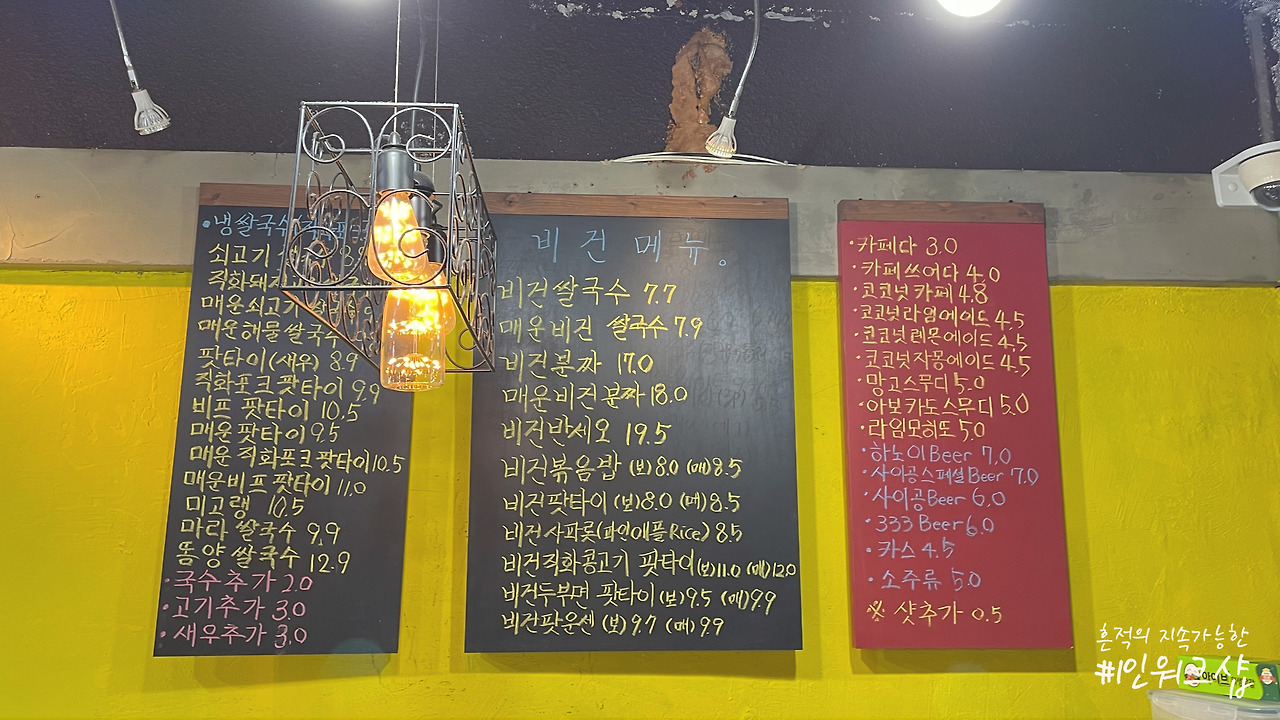 •냉쌀국수
쇠고기
직화돼지
매운쇠고기
매운해물쌀국수
팟타이(새우) 8.9
직화포크팟타이 9.9
비프 팟타이 10.5
매운팟타이 9.5
매운 직화포크팟타이 10.5
매운비프 팟타이 11.0
미고랭 10.5
마라 쌀국수 9.9
똠양 쌀국수 12.9
•국수추가 2.0
•고기추가 3.0
•새우추가 3.0
비건메뉴。
비건쌀국수 7.7
매운비건 쌀국수 7.9
비건분짜 17.0
매운비건분짜 18.0
비건반세오 19.5
비건볶음밥 (보)8.0 (매)8.5
비건팟타이 (보)8.0 (매)8.5
비건사파롯(파인애플Rice) 8.5
비건직화콩고기 팟타이(보)11.0 (매)12.0
비건두부면 팟타이(보)9.5 (매)9.9
비건팟운센 (보)9.7 (매)9.9
•카페다 3.0
•카페쓰어다 4.0
•코코넛카페 4.8
•코코넛라임에이드 4.5
•코코넛레몬에이드 4.5
•코코넛자몽에이드 4.5
•망고스무디 5.0
•아보카도스무디 5.0
•라임모히또 5.0
•하노이Beer 7.0
•사이공스페셜Beer 7.0
•사이공Beer 6.0
•333 Beer 6.0
•카스 4.5
•소주류 5.0
※ 샷추가 0.5
흔적의 지속가능한
#인워크샵